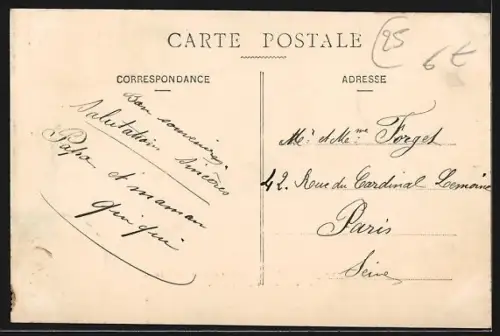 CARTE POSTALE
25
6€
CORRESPONDANCE
ADRESSE
Bon souvenir
Salutation Sincères
Papa et maman
Quiqui
Mr et Mme Forget
42. Rue du Cardinal Lemoine
Paris
Seine